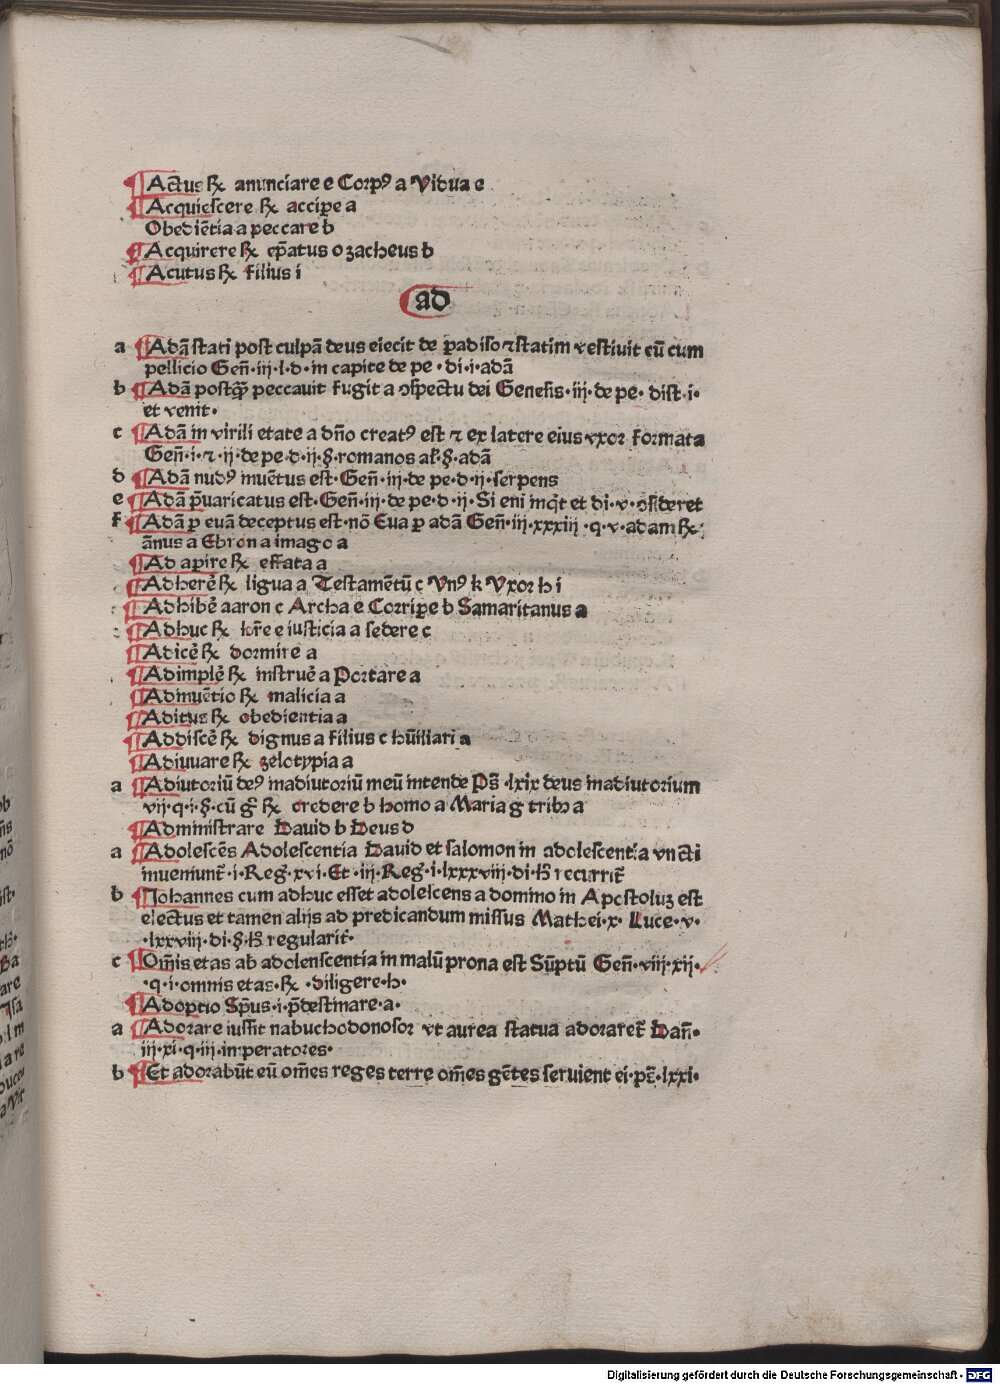 ¶Actus ℞ anunciare e Corpꝰ a Vidua e
¶Acquiescere ℞ accipe a
Obediētia a peccare b
¶Acquirere ℞ ep̄atus o zacheus b
¶Acutus ℞ filius i
ad
a ¶Adā stati post culpā deus eiecit de ꝑadiso ⁊ statim vestivit eū cum
pellicio Geñ·iij·l·d·in capite de pe·di·i·adā
b ¶Adā postꝙ̄ peccauit fugit a ꝯspectu dei Genesis·iij·de pe·dist·i·
et venit·
c ¶Adā in virili etate a dño creatꝰ est ⁊ ex latere eius vxor formata
Geñ·i·⁊·ij·de pe·d·ij·§·romanos al'·§·adā
d ¶Adā nudꝰ inuētus est·Geñ·iij·de pe·d·ij·serpens
e ¶Adā p̄uaricatus est·Geñ·iij·de pe·d·ij·Si eni inq̄t et di·v·ꝯsideret
f ¶Adā ꝑ euā deceptus est·nō Eua ꝑ adā Geñ·iij·xxxiij·q·v·adam ℞
ānus a Ebron a imago a
¶Ad aperire ℞ effata a
¶Adherē ℞ ligua a Testamētū c Vnꝰ k Vxor h i
¶Adhibē aaron c Archa e Corripe b Samaritanus a
¶Adhuc ℞ hr̄e e iusticia a sedere c
¶Adicē ℞ dormire a
¶Adimplē ℞ instruē a Portare a
¶Adinuētio ℞ malicia a
¶Aditus ℞ obedientia a
¶Addiscē ℞ dignus a filius c hūiliari a
¶Adiuuare ℞ zelotypia a
a ¶Adiutoriū deꝰ inadiutoriū meū intende Ps̄·lxix deus inadiutorium
vij·q·i·§·cū g̊ ℞ credere b homo a Maria g tribꝫ a
¶Administrare David b Deus d
a ¶Adolescēs Adolescentia David et salomon in adolescentia vncti
inueniunt̄·i·Reg·xvi·Et·iij·Reg·i·lxxxviij·di·h̄ recurrit̄
b ¶Johannes cum adhuc esset adolescens a domino in Apostoluꝫ est
electus et tamen alijs ad predicandum missus Mathei·x·Luce·v·
·lxxviij·di·§·h̄ regularit̄·
c ¶Om̄is etas ab adolenscentia in malū prona est Sūptū Geñ·viij·xij·
·q·i·omnis etas·℞·diligere·h·
¶Adoptio Sp̄us·i·p̄destinare·a·
a ¶Adorare iussit nabuchodonosor vt aurea statua adoraret̄ Dañ·
iij·xi·q·iij·inperatores·
b ¶Et adorabūt eū om̄es reges terre om̄es gētes seruient ei·ps̄·lxxi·
Digitalisierung gefördert durch die Deutsche Forschungsgemeinschaft - DFG